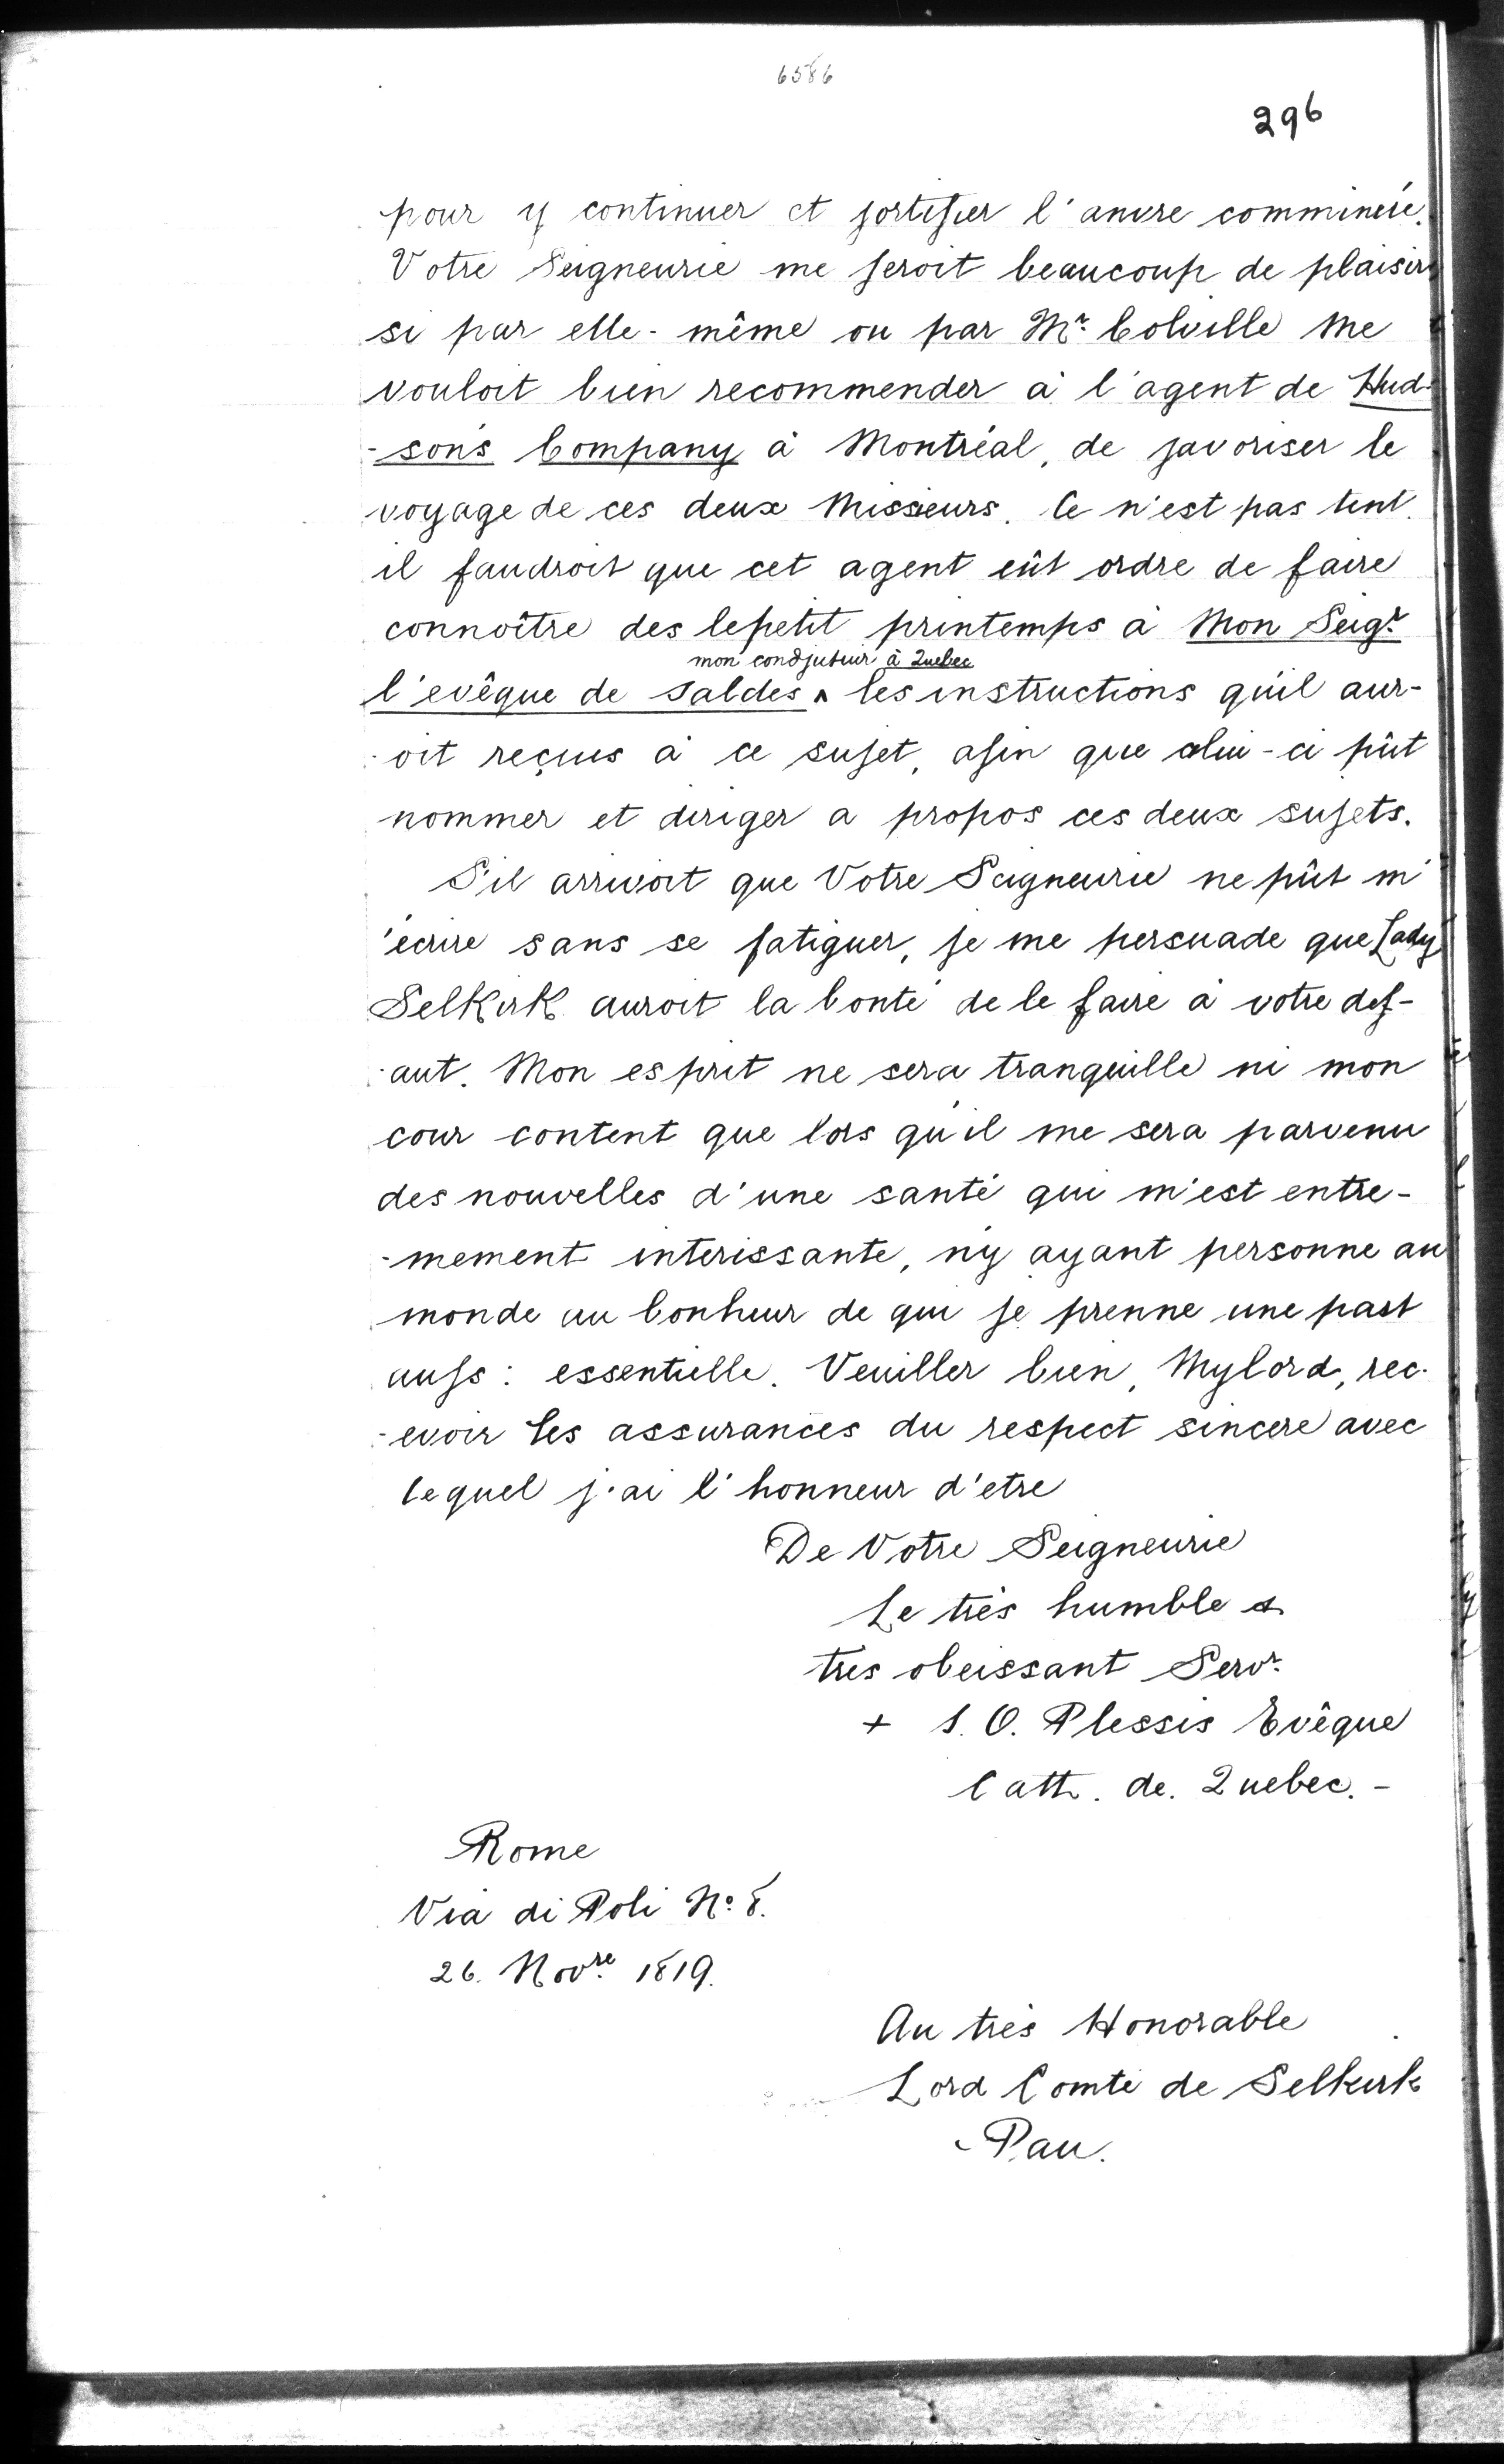 6586
296
pour y continuer et fortifier l'anvre comminéré.
Votre Seigneurie me feroit beaucoup de plaisir,
si par elle-même ou par Mr. Colville me
vouloit bien recommender à l'agent de Hud-
-son's Company à Montréal, de favoriser le
voyage de ces deux Missieurs. Ce n'est pas tint.
il faudroit que cet agent eût ordre de faire
connoître des lepetit printemps à Mon Seigr
mon condjuteur à Quebec
l'evêque de Saldes ^ les instructions qu'il aur-
-oit reçues à ce sujet, afin que celui-ci pût
nommer et diriger a propos ces deux sujets.
S'il arrivoit que Votre Seigneurie ne pût m'
'écrire sans se fatiguer, je me persuade que Lady
Selkirk auroit la bonté de le faire à votre def-
-aut. Mon esprit ne sera tranquille ni mon
cour content que lors qu'il me sera parvenu
des nouvelles d'une santé qui m'est entre-
-mement interissante, n'y ayant personne au
monde au bonheur de qui je prenne une part
aufs: essentielle. Veuiller bien, Mylord, rec-
-evoir les assurances du respect sincere avec
lequel j'ai l'honneur d'etre
De Votre Seigneurie
Le très humble &
tres obeissant Servr.
+ J. O. Plessis Evêque
Cath. de. Quebec. -
Rome
Via di Poli No. 8.
26. Novre 1819.
Au très Honorable
Lord Comte de Selkirk
Pau.